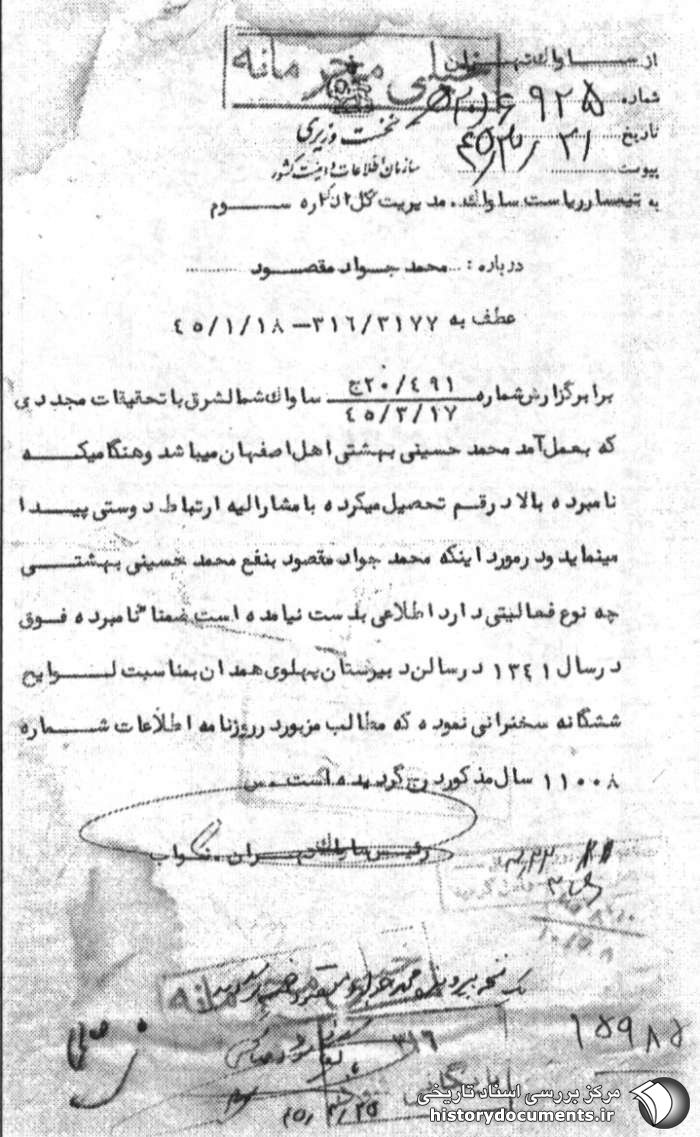 خیلی محرمانه
از ساواک تهران
شماره ۹۲۵
تاریخ ۳۱
پیوست
نخست وزیری
سازمان اطلاعات و امنیت کشور
به تیمسار ریاست ساواک. مدیریت کل اداره سوم
درباره : محمد جواد مقصود
عطف به ۳۱۶/۳۱۷۷ – ۴۵/۱/۱۸
برابر گزارش شماره ۲۰/۴۹۱ج ساواک شمالشرق با تحقیقات مجددی
۴۵/۳/۱۷
که بعمل آمد محمد حسینی بهشتی اهل اصفهان میباشد و هنگامیکه
نامبرده بالا در قم تحصیل میکرده با مشارالیه ارتباط دوستی پیدا
مینماید و در مورد اینکه محمد جواد مقصود بنفع محمد حسینی بهشتی
چه نوع فعالیتی دارد اطلاعی بدست نیامده است ضمنا" نامبرده فوق
در سال ۱۳۴۱ در سالن دبیرستان پهلوی همدان بمناسبت لوایح
ششگانه سخنرانی نموده که مطالب مزبور در روزنامه اطلاعات شماره
۱۱۰۰۸ سال مذکور درج گردیده است . س
رئیس ساواک تهران . نواب
یک نسخه
۳۱۶
۱۵۹۸۵
بایگانی
مرکز بررسی اسناد تاریخی
historydocuments.ir